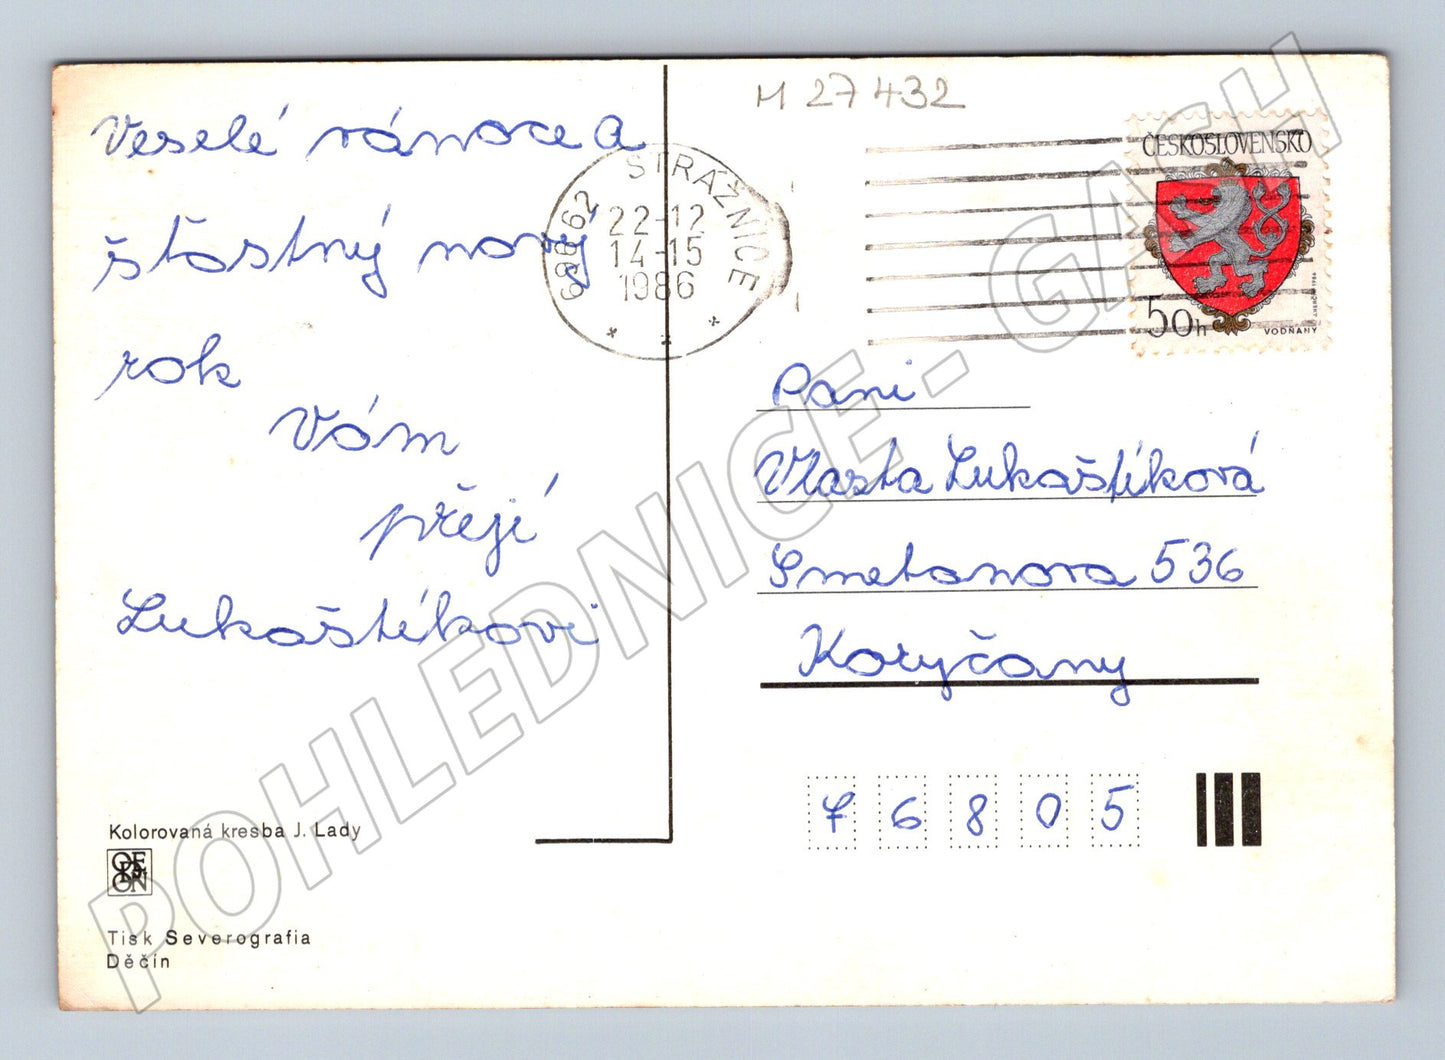 M 27 432
Veselé vánoce a
šťastný nový
rok
Vám
přejí
Lukaštíkovi
698 62 STRÁŽNICE
22-12
14-15
1986
ČESKOSLOVENSKO
50h
VODŇANY
Paní
Vlasta Lukaštíková
Smetanova 536
Koryčany
76805
Kolorovaná kresba J. Lady
Tisk Severografia
Děčín
POHLEDNICE - GASH